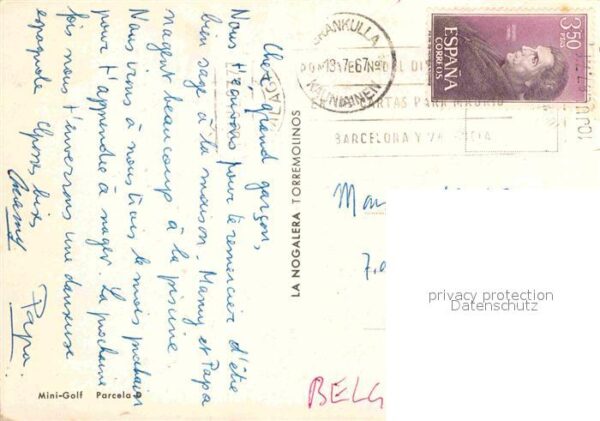 Cher grand garçon,
Nous t'écrivons pour te remercier d'être
bien sage à la maison. Mamy et Papa
nagent beaucoup à la piscine.
Nous irons à nous trois le mois prochain
pour t'apprendre à nager. La prochaine
fois nous t'enverrons une danseuse
espagnole Grosses bises
Mamy Papa.
LA NOGALERA TORREMOLINOS
Mini-Golf Parcela
GRANKULLA
13·7·67
KAUNIAINEN
MALAGA
PON EL Nº DEL DIS
CARTAS PARA MADRID
BARCELONA Y VALENCIA
3,50
PTAS
ESPAÑA
CORREOS
BELG
privacy protection
Datenschutz